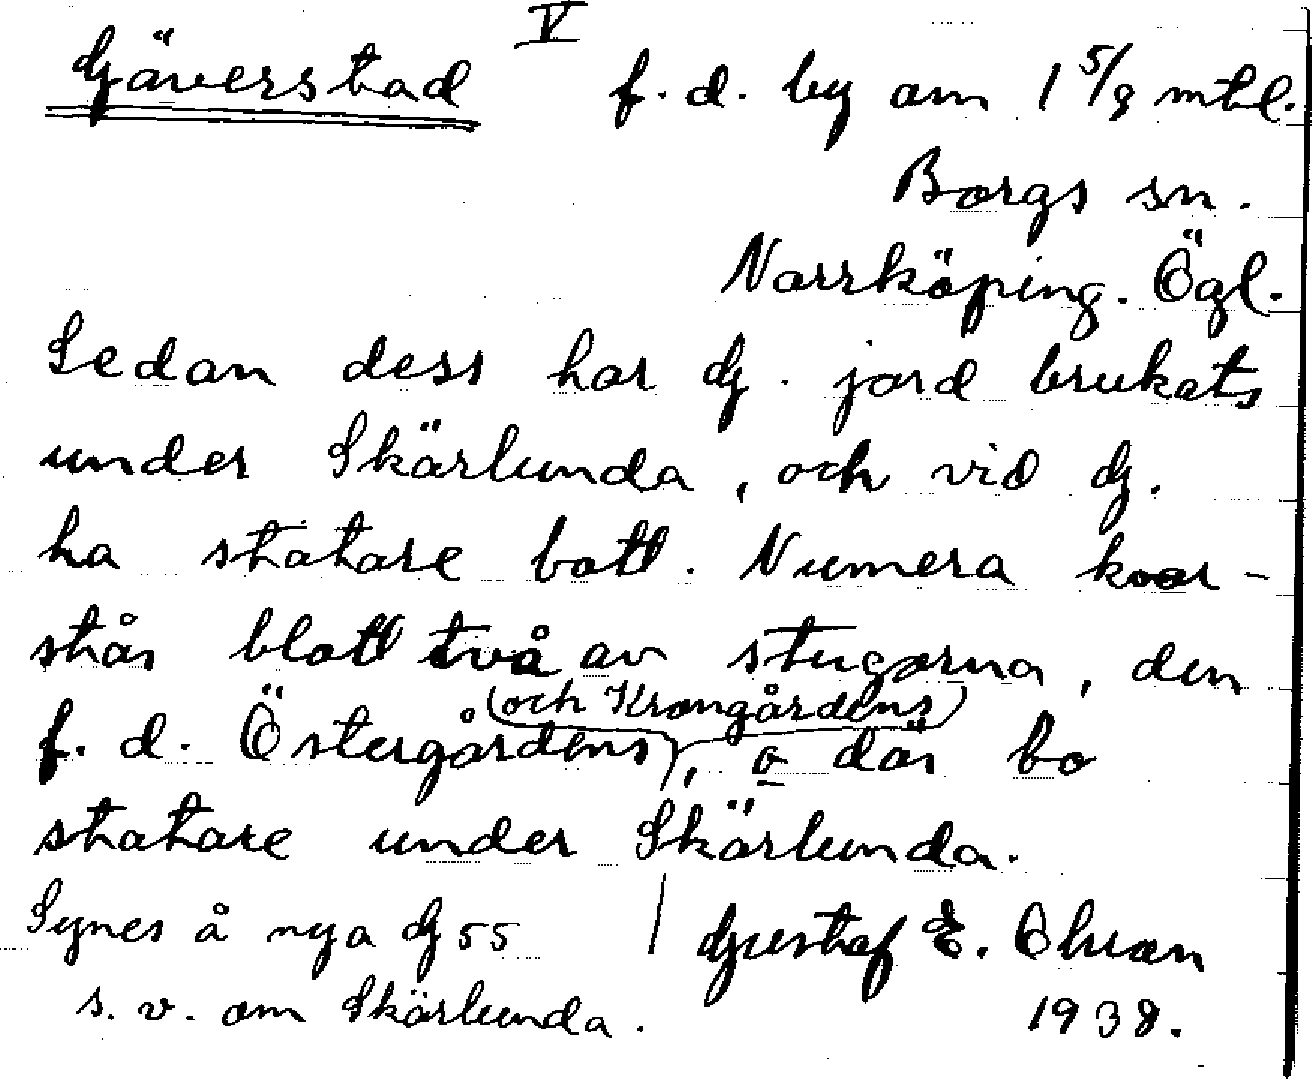 Gäverstad V f. d. by om 1 5/8 mtl.
Borgs sn.
Norrköping. Ögl.
Sedan dess har G. jord brukats
under Skärlunda, och vid G.
ha statare bott. Numera kvar-
står blott två av stugorna, den
(och Krongårdens)
f. d. Östergårdens, o där bo
statare under Skärlunda.
Synes å nya G 55
s. v. om Skärlunda.
Gustaf E. Olson
1938.